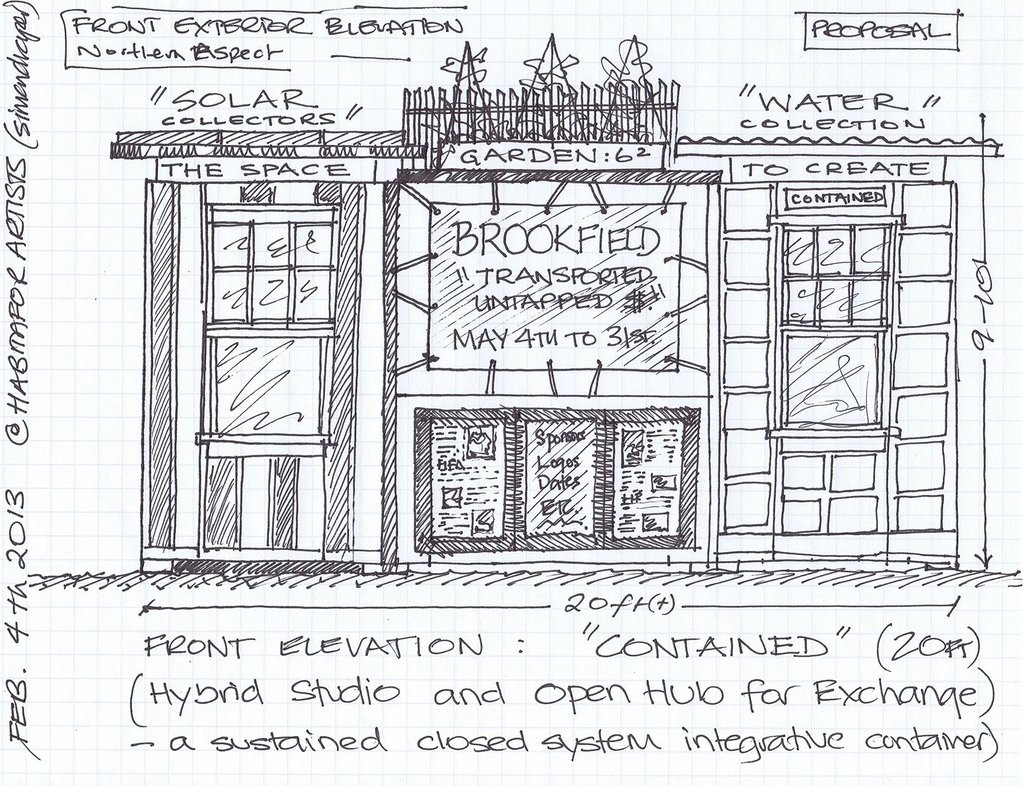 FRONT EXTERIOR ELEVATION
Northern Aspect
PROPOSAL
"SOLAR
COLLECTORS"
"WATER"
COLLECTION
GARDEN:6²
THE SPACE
TO CREATE
CONTAINED
BROOKFIELD
"TRANSPORTED
UNTAPPED #"
MAY 4TH TO 31ST.
Sponsors
Logos
Dates
ETC.
9-10'
20ft(+)
FRONT ELEVATION : "CONTAINED" (20FT)
(Hybrid Studio and Open Hub for Exchange)
- a sustained closed system integrative container)
FEB. 4th 2013 @HABITATFORARTISTS (simondraper)